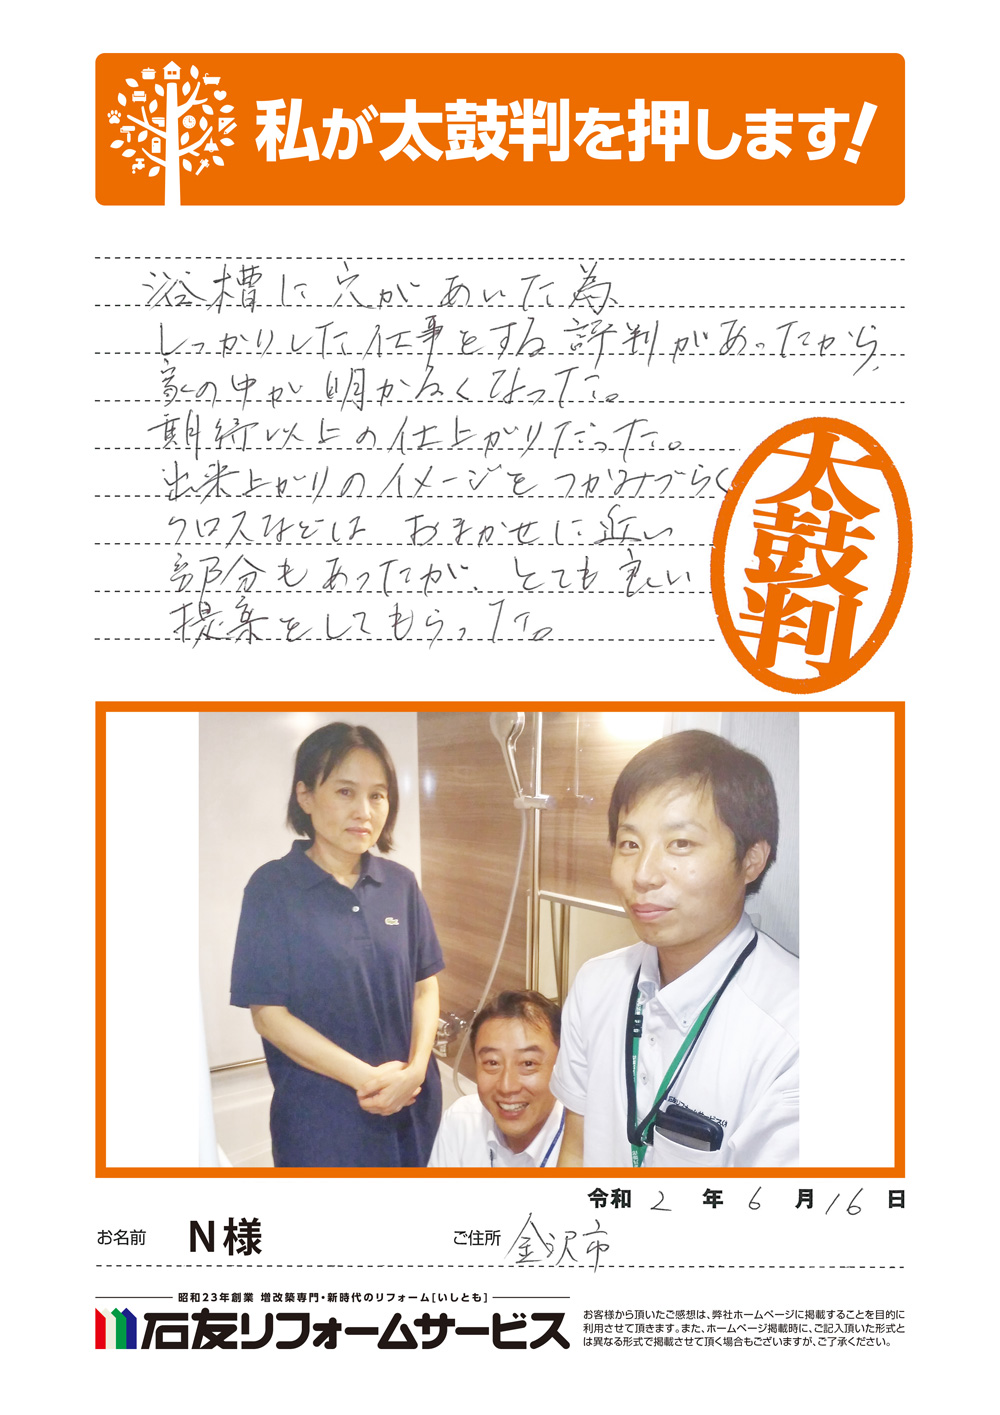 私が太鼓判を押します!
浴槽に穴があいた為、
しっかりした仕事をする評判があったから、
家の中が明かるくなった。
期待以上の仕上がりだった。
出来上がりのイメージをつかみづらく
クロスなどは おまかせに近い
部分もあったが、とても良い
提案をしてもらった。
太鼓判
石友リフォームサービス
令和 2 年 6 月 16 日
お名前 N様 ご住所 金沢市
昭和23年創業 増改築専門・新時代のリフォーム[いしとも]
石友リフォームサービス
お客様から頂いたご感想は、弊社ホームページに掲載することを目的に
利用させて頂きます。また、ホームページ掲載時に、ご記入頂いた形式と
は異なる形式で掲載させて頂く場合もございますが、ご了承ください。